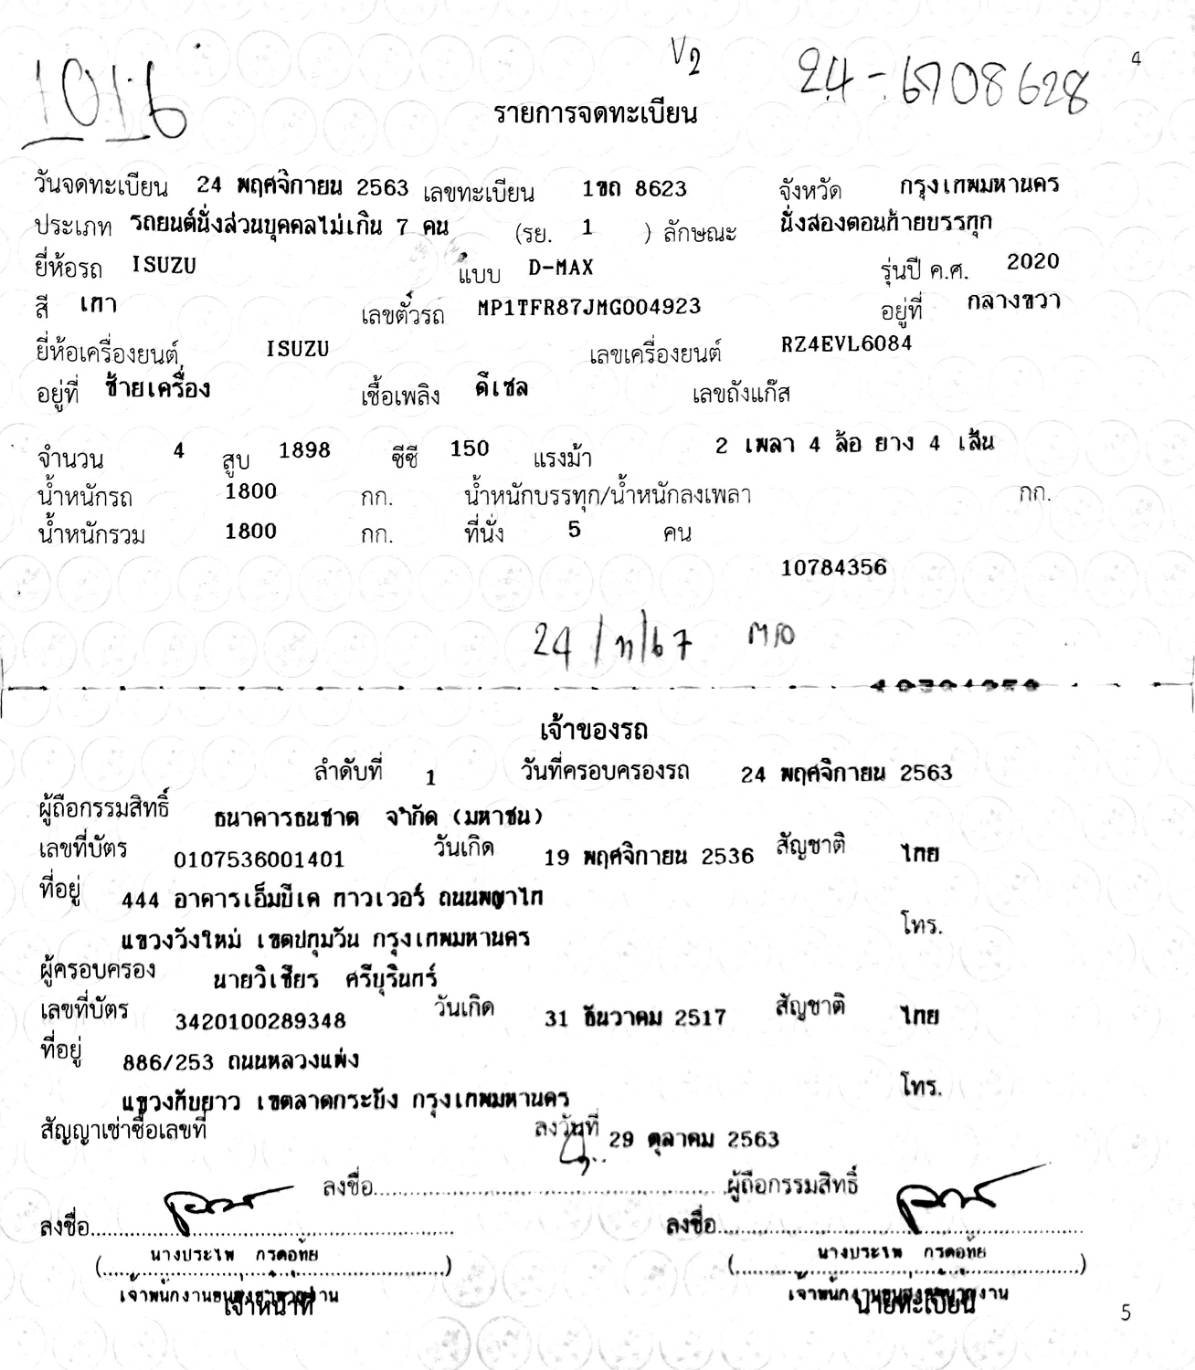 V2
4
1016
24-6708628
รายการจดทะเบียน
วันจดทะเบียน 24 พฤศจิกายน 2563 เลขทะเบียน 1ขถ 8623 จังหวัด กรุงเทพมหานคร
ประเภท รถยนต์นั่งส่วนบุคคลไม่เกิน 7 คน (รย. 1 ) ลักษณะ นั่งสองตอนท้ายบรรทุก
ยี่ห้อรถ ISUZU แบบ D-MAX รุ่นปี ค.ศ. 2020
สี เทา เลขตัวรถ MP1TFR87JMG004923 อยู่ที่ กลางขวา
ยี่ห้อเครื่องยนต์ ISUZU เลขเครื่องยนต์ RZ4EVL6084
อยู่ที่ ซ้ายเครื่อง เชื้อเพลิง ดีเซล เลขถังแก๊ส
จำนวน 4 สูบ 1898 ซีซี 150 แรงม้า 2 เพลา 4 ล้อ ยาง 4 เส้น
น้ำหนักรถ 1800 กก. น้ำหนักบรรทุก/น้ำหนักลงเพลา กก.
น้ำหนักรวม 1800 กก. ที่นั่ง 5 คน
10784356
24/11/67
เจ้าของรถ
ลำดับที่ 1 วันที่ครอบครองรถ 24 พฤศจิกายน 2563
ผู้ถือกรรมสิทธิ์ ธนาคารธนชาต จำกัด (มหาชน)
เลขที่บัตร 0107536001401 วันเกิด 19 พฤศจิกายน 2536 สัญชาติ ไทย
ที่อยู่ 444 อาคารเอ็มบีเค ทาวเวอร์ ถนนพญาไท
แขวงวังใหม่ เขตปทุมวัน กรุงเทพมหานคร โทร.
ผู้ครอบครอง นายวิเชียร ศรีบุรินทร์
เลขที่บัตร 3420100289348 วันเกิด 31 ธันวาคม 2517 สัญชาติ ไทย
ที่อยู่ 886/253 ถนนหลวงแพ่ง
แขวงทับยาว เขตลาดกระบัง กรุงเทพมหานคร โทร.
สัญญาเช่าซื้อเลขที่ ลงวันที่ 29 ตุลาคม 2563
ลงชื่อ..........ผู้ถือกรรมสิทธิ์
ลงชื่อ.......... ลงชื่อ..........
(นางประไพ กรดอทัย) (นางประไพ กรดอทัย)
เจ้าพนักงานขนส่งชำนาญงาน เจ้าพนักงานขนส่งชำนาญงาน
เจ้าหน้าที่ นายทะเบียน
5